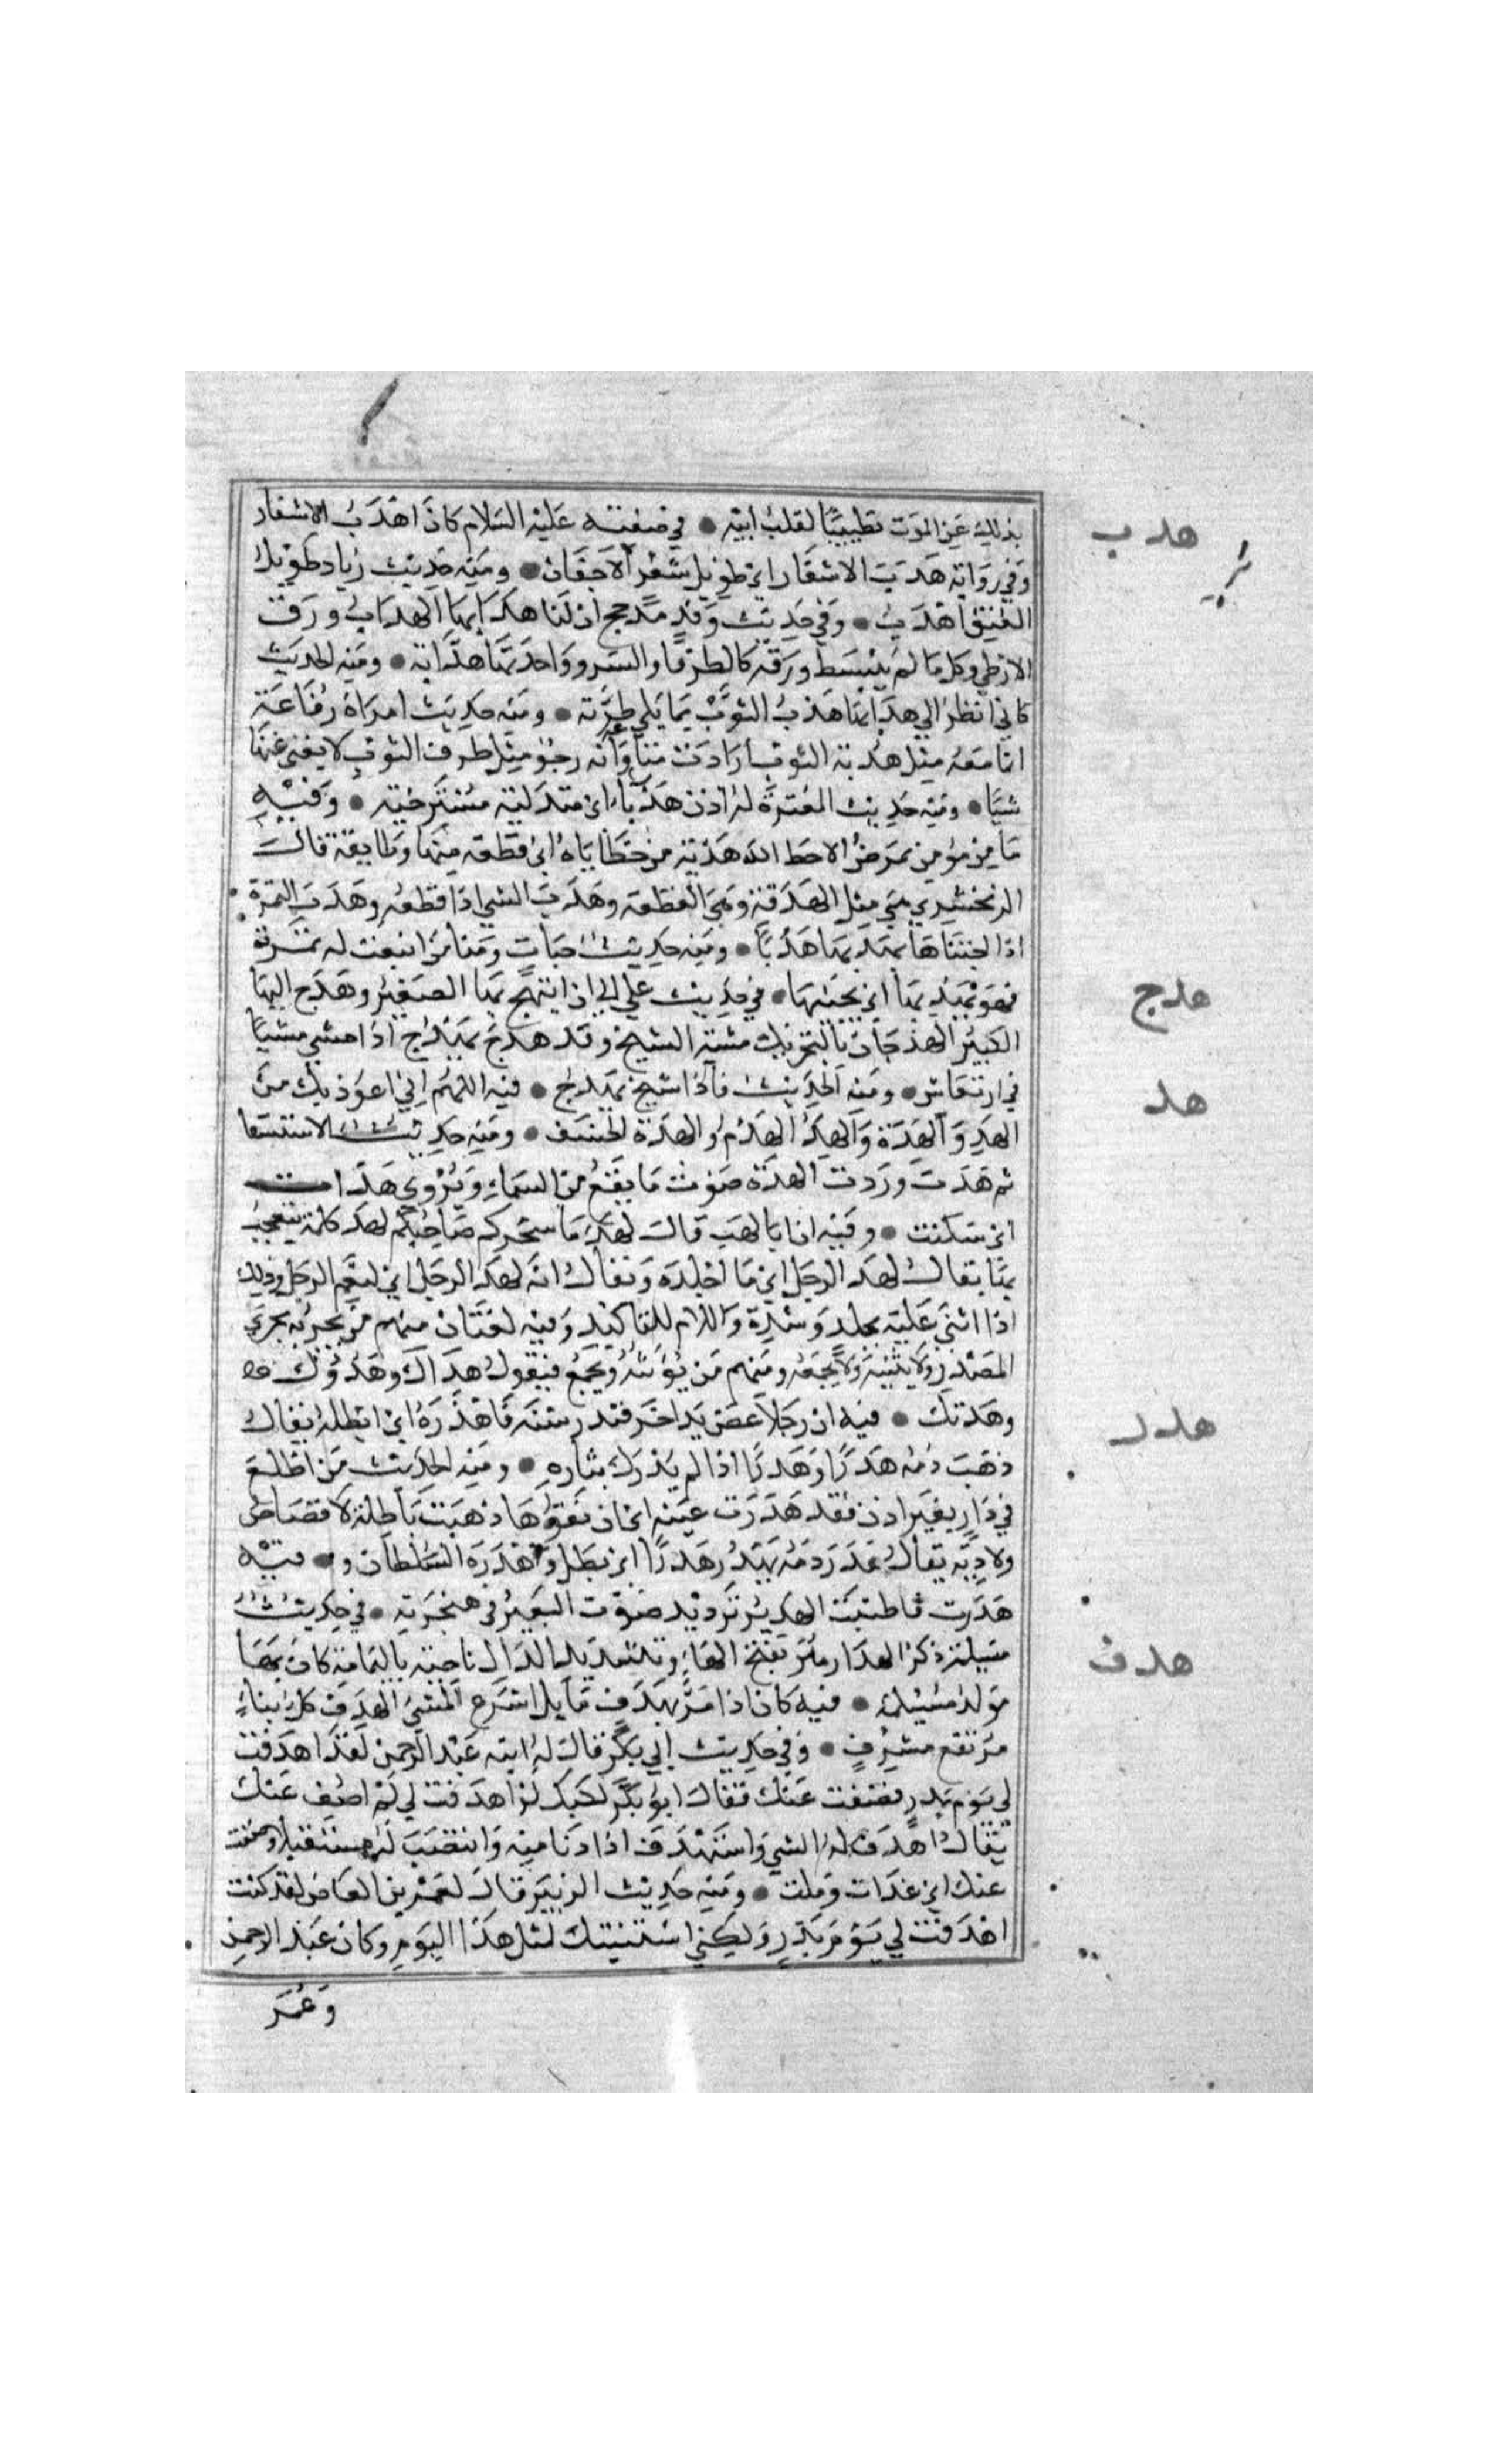 بذلك عن الموت تطييبا لقلب ابيه • في صفته عليه السلام كان اهدب الاشفار
هدب
وفي رواية هدب الاشفار اي طويل شعر الاجفان • ومنه حديث زياد طويل
العنق اهدب • وفي حديث وفد مذحج ان لنا هدابها الهداب ورق
الارطي وكل ما لم ينبسط ورقه كالطرفا والسرو واحدتها هدابة • ومنه الحديث
كاني انظر الي هدابها هدب الثوب مما يلي طرته • ومنه حديث امراة رفاعة
انما معه مثل هدبة الثوب ارادت متاعه وانه رخو مثل طرف الثوب لا يغني عنها
شيا • ومنه حديث المغيرة له اذن هدباء اي متدلية مسترخية • وفيه
ما من مومن يمرض الا حط الله هدبة من خطاياه اي قطعة منها وطايفة قال
الزمخشري هي مثل الهدفة وهي القطعة وهدب الشي اذا قطعه وهدب الثمرة
اذا اجتناها يهدبها هدبا • ومنه حديث خباب ومنا من اينعت له ثمرته
فهو يهدبها اي يجنيها • في حديث علي الي ان ابتهج بها الصغير وهدج اليها
هدج
الكبير الهدجان بالتحريك مشية الشيخ وقد هدج يهدج اذا مشي مشيا
في ارتعاش • ومنه الحديث فاذا شيخ يهدج • فيه اللهم اني اعوذ بك من
هد
الهد والهدة والهد الهدم والهدة الخسف • ومنه حديث الاستسقا
ثم هدت ودرت الهدة صوت ما يقع من السماء ويروي هدات
اي سكنت • وفيه ان ابا لهب قال لهد ما سحركم صاحبكم لهد كلمة يتعجب
بها يقال لهد الرجل اي ما اجلده ويقال انه لهد الرجل اي لنعم الرجل وذلك
اذا اثني عليه بجلد وشدة واللام للتاكيد وفيه لغتان منهم من يجريه مجري
المصدر ولا يثنيه ولا يجمعه ومنهم من يؤنثه ويجمع فيقول هداك وهدوك
وهدتك • فيه ان رجلا عض يد اخر فندر سنه فاهدره اي ابطله يقال
هدر
ذهب دمه هدرا وهدرا اذا لم يدرك بثاره • ومنه الحديث من اطلع
في دار بغير اذن فقد هدرت عينه اي ان فقؤها ذهبت باطلة لا قصاص
ولا دية يقال هدر دمه يهدر هدرا اي بطل واهدره السلطان و • فيه
هدرت فاطنبت الهدير ترديد صوت البعير في حنجرته • في حديث
مسيلمة ذكر الهدار هو بفتح الهاء وتشديد الدال ناحية باليمامة كان بها
مولد مسيلمة • فيه كان اذا مر بهدف مايل اسرع المشي الهدف كل بناء
هدف
مرتفع مشرف • وفي حديث ابي بكر قال له ابنه عبد الرحمن لقد اهدفت
لي يوم بدر فضفت عنك فقال ابو بكر لكنك لو اهدفت لي لم اضف عنك
يقال اهدف له الشي واستهدف اذا دنا منه وانتصب له مستقبلا وضفت
عنك اي عدلت وملت • ومنه حديث الزبير قال لعمرو بن العاص لقد كنت
اهدفت لي يوم بدر ولكني استبقيتك لمثل هذا اليوم وكان عبد الرحمن
وعمر